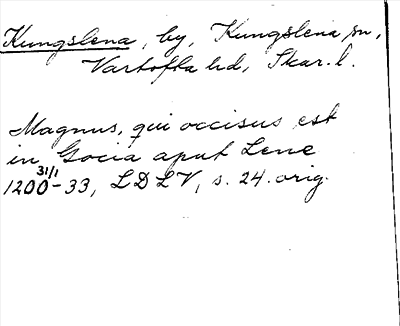 Kungslena, by, Kungslena sn,
Vartofta hd, Skar. l.
Magnus, qui occisus est
in Gocia aput Lene
31/1
1200-33, LDLV, s. 24. orig.